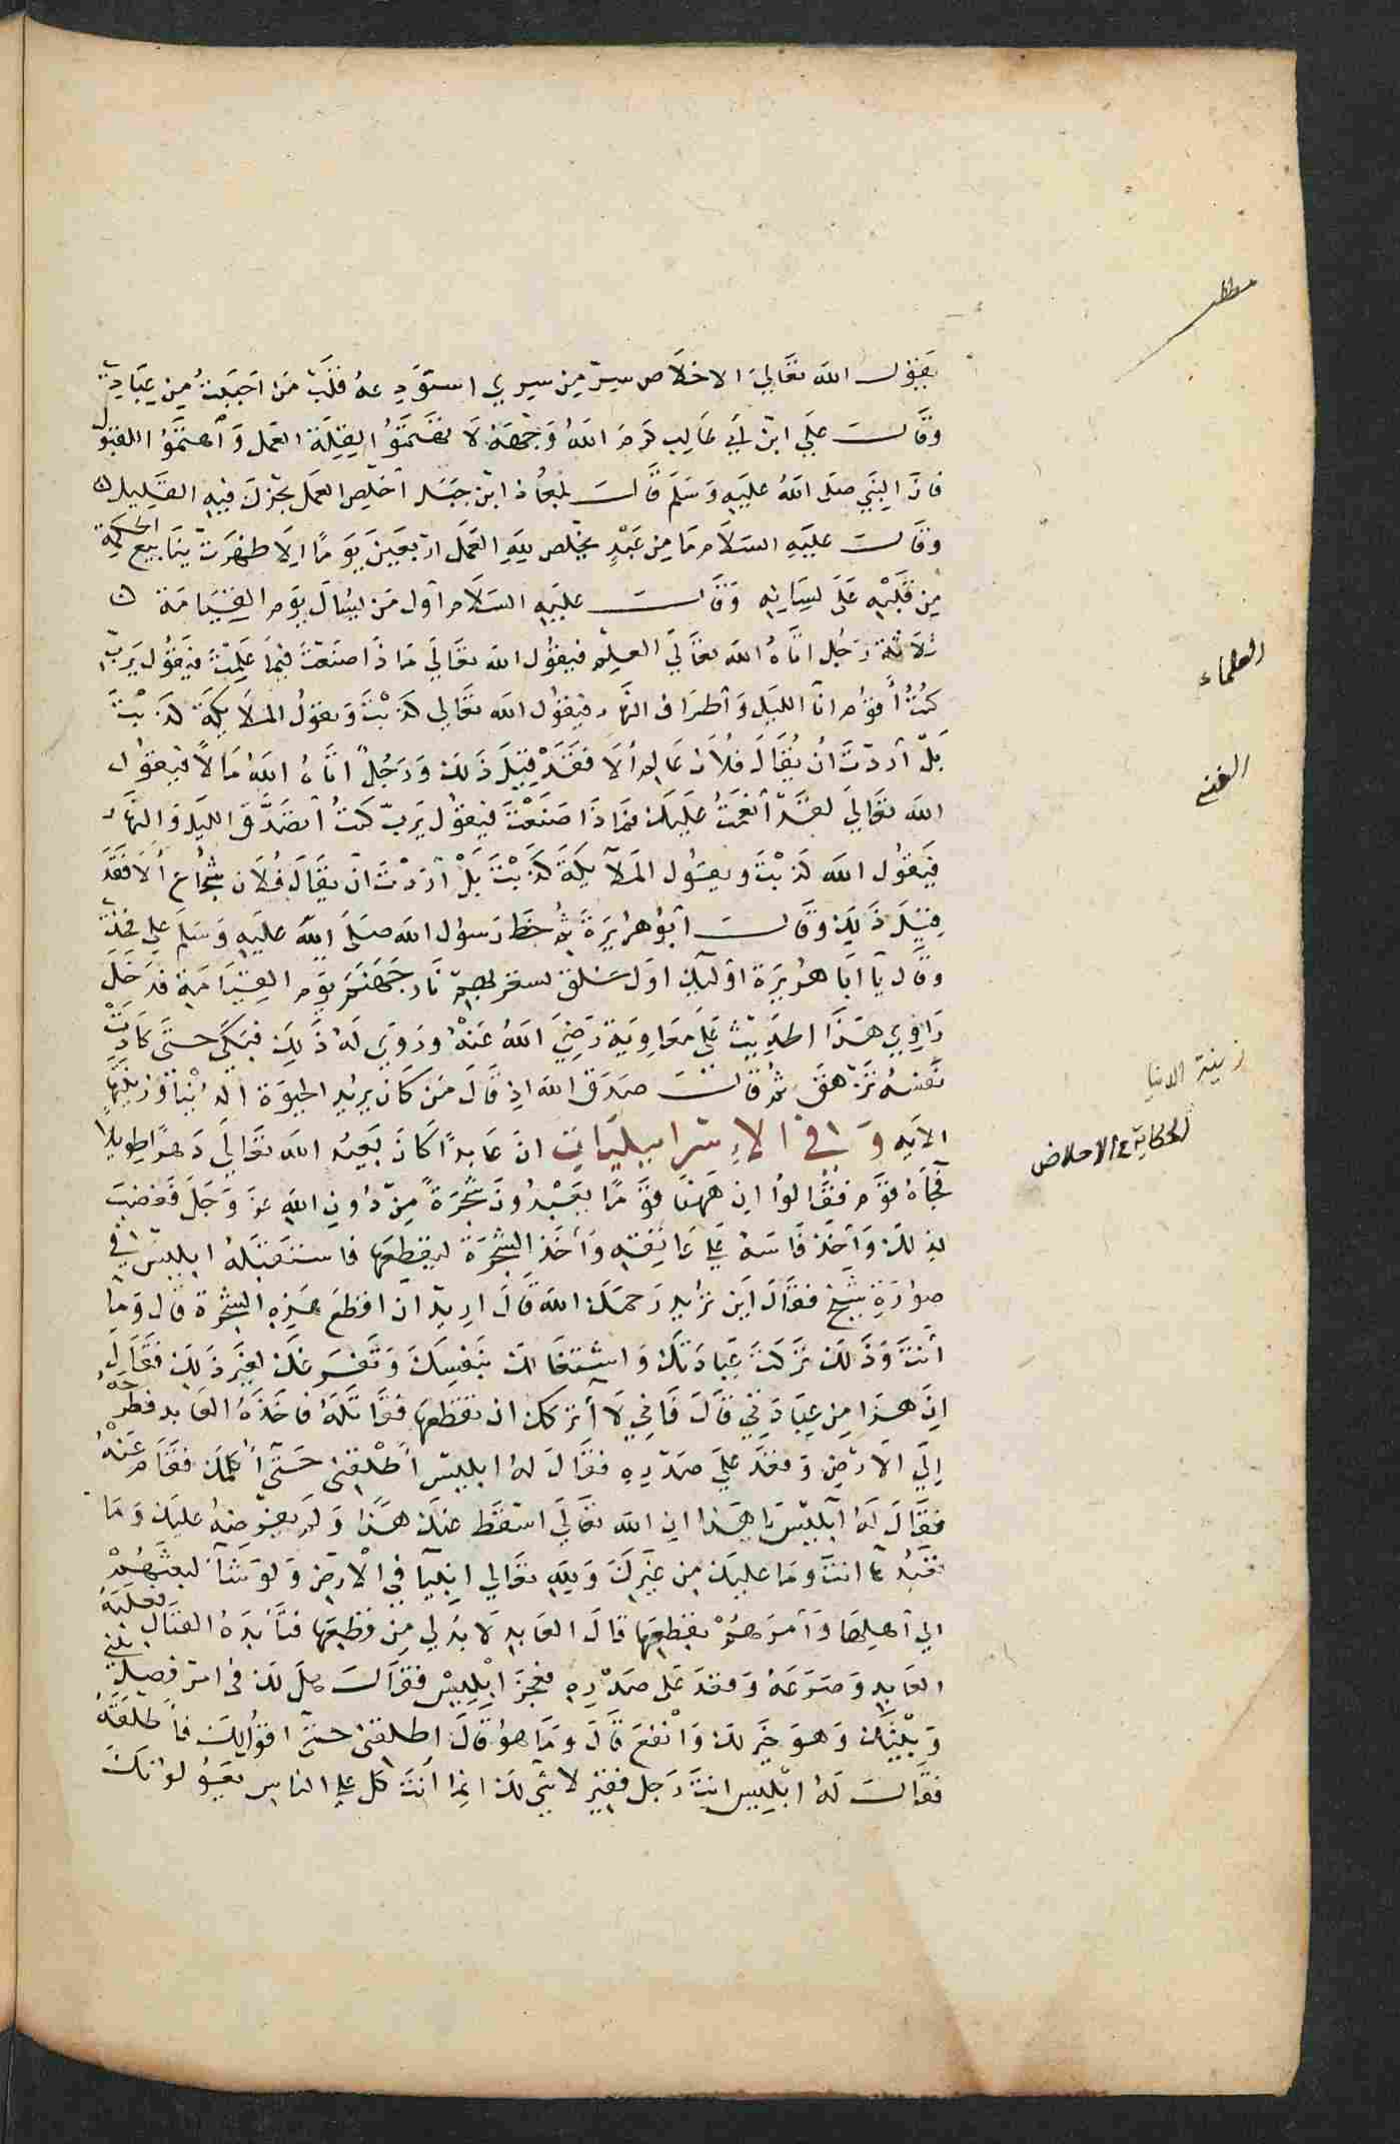 يقول الله تعالى الاخلاص سر من سري استودعه قلب من احببت من عبادي
وقال علي ابن أبي طالب كرم الله وجهه لا تهتموا لقلة العمل وأهتموا للقبول
فان النبي صلى الله عليه وسلم قال لمعاذ ابن جبل أخلص العمل يجزك فيه القليل
وقال عليه السلام ما من عبد يخلص لله العمل اربعين يوما الا ظهرت ينابيع الحكمة
من قلبه على لسانه وقال عليه السلام أول من يسأل يوم القيامة
ثلاثة رجل اتاه الله تعالى العلم فيقول الله تعالى ماذا صنعت فيما علمت فيقول يرب
كنت أقوم انآ الليل وأطراف النهار فيقول الله تعالى كذبت وتقول الملائكة كذبت
بل أردت أن يقال فلان عالم ألا فقد قيل ذلك ورجل اتاه الله مالا فيقول
الله تعالى لقد أنعمت عليك فماذا صنعت فيقول يرب كنت أتصدق الليل والنهار
فيقول الله كذبت وتقول الملآئكة كذبت بل أردت ان يقال فلان شجاع ألا فقد
قيل ذلك وقال أبو هريرة ثم خط رسول الله صلى الله عليه وسلم على فخذي
وقال يا أبا هريرة اوليك اول خلق تسعر بهم نار جهنم يوم القيامة فدخل
راوي هذا الحديث على معاوية رضي الله عنه وروي له ذلك فبكى حتى كادت
نفسه تزهق ثم قال صدق الله اذ قال من كان يريد الحيوة الدنيا وزينتها
الايه وفي الإسرائيليات ان عابدا كان يعبد الله تعالى دهرا طويلا
فجاه قوم فقالوا ان ههنا قوما يعبدون شجرة من دون الله عز وجل فغضب
لذلك وأخذ فاسه على عاتقه وأخذ الشجرة ليقطعها فاستقبله ابليس في
صورة شيخ فقال اين تريد رحمك الله قال اريد ان اقطع هذه الشجرة قال وما
أنت وذلك تركت عبادتك واشتغالك بنفسك وتفرغك لغير ذلك فقال
ان هذا من عبادتي قال فاني لا أتركك ان تقطعها فقاتله فاخذه العابد فطرحه
إلى الارض وقعد على صدره فقال له ابليس أطلقني حتى أكلمك فقام عنه
فقال له ابليس يا هذا ان الله تعالى اسقط عنك هذا ولم يفرضه عليك وما
تعبدها انت وما عليك من غيرك ولله تعالى انبيا في الارض ولو شآ لبعثهم
الى أهلها وأمرهم بقطعها قال العابد لا بد لي من قطعها فنابذه القتال فغلبه
العابد وصرعه وقعد على صدره فعجز ابليس فقال هل لك في امر فصل بيني
وبينك وهو خير لك وأنفع قال وما هو قال اطلقني حتى اقول لك فأطلقه
فقال له ابليس انت رجل فقير لا شي لك انما أنت كل على الناس يعولونك
العلماء
الغني
زينة الدنيا
الحكاية في الاخلاص